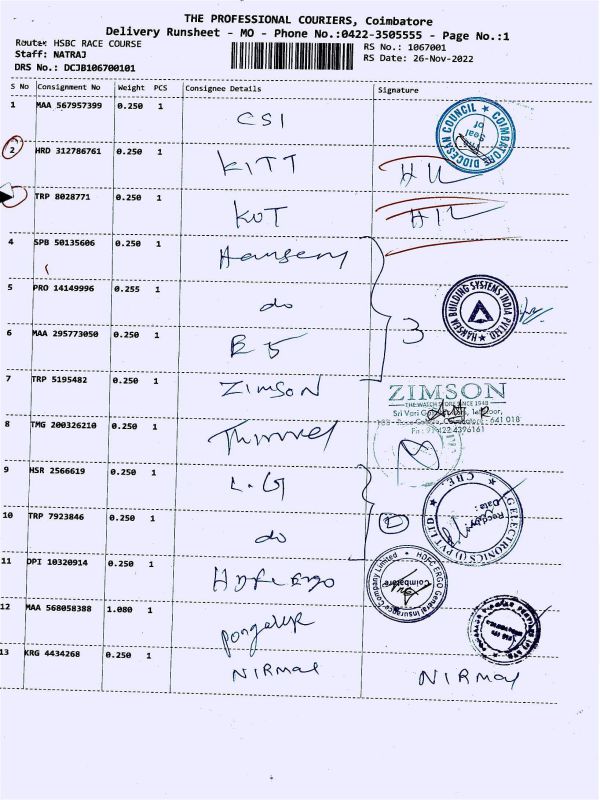 THE PROFESSIONAL COURIERS, Coimbatore
Delivery Runsheet - MO - Phone No.:0422-3505555 - Page No.:1
Route: HSBC RACE COURSE
RS No.: 1067001
Staff: NATRAJ
RS Date: 26-Nov-2022
DRS No.: DCJB106700101
S No Consignment No Weight PCS Consignee Details Signature
1 MAA 567957399 0.250 1 CSI
COIMBATORE DIOCESAN COUNCIL
Seal of
2 HRD 312786761 0.250 1 KITT
TRP 8028771 0.250 1 KOT
4 SPB 50135606 0.250 1 Hansem
5 PRO 14149996 0.255 1 do
3
HANSEM BUILDING SYSTEMS INDIA PVT LTD
6 MAA 295773050 0.250 1
7 TRP 5195482 0.250 1 ZIMSON
ZIMSON
THE WATCH STORE SINCE 1948
641 018
8 TMG 200326210 0.250 1
9 HSR 2566619 0.250 1 L.G
LG ELECTRONICS (I) PVT LTD
CBE
Received
Date :
10 TRP 7923846 0.250 1 do
2
11 DPI 10320914 0.250 1 Hdfc Ergo
HDFC ERGO General Insurance Company Limited
Coimbatore
12 MAA 568058388 1.080 1
13 KRG 4434268 0.250 1 NIRMAL
NIRMAL